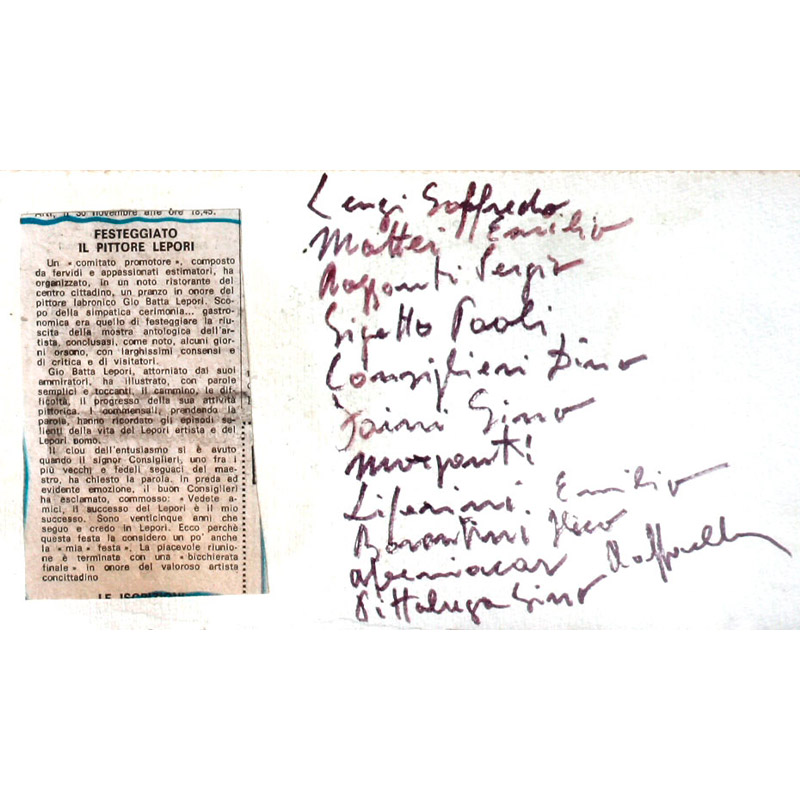 Arti, il 30 novembre alle ore 18,45.
FESTEGGIATO
IL PITTORE LEPORI
Un « comitato promotore », composto
da fervidi e appassionati estimatori, ha
organizzato, in un noto ristorante del
centro cittadino, un pranzo in onore del
pittore labronico Gio Batta Lepori. Sco-
po della simpatica cerimonia... gastro-
nomica era quello di festeggiare la riu-
scita della mostra antologica dell'ar-
tista, conclusasi, come noto, alcuni gior-
ni orsono, con larghissimi consensi e
di critica e di visitatori.
Gio Batta Lepori, attorniato dai suoi
ammiratori, ha illustrato, con parole
semplici e toccanti, il cammino, le dif-
ficoltà, il progresso della sua attività
pittorica. I commensali, prendendo la
parola, hanno ricordato gli episodi sa-
lienti della vita del Lepori artista e del
Lepori uomo.
Il clou dell'entusiasmo si è avuto
quando il signor Consiglieri, uno fra i
più vecchi e fedeli seguaci del mae-
stro, ha chiesto la parola. In preda ad
evidente emozione, il buon Consiglieri
ha esclamato, commosso: « Vedete a-
mici, il successo del Lepori è il mio
successo. Sono venticinque anni che
seguo e credo in Lepori. Ecco perchè
questa festa la considero un po' anche
la « mia » festa ». La piacevole riunio-
ne è terminata con una « bicchierata
finale » in onore del valoroso artista
concittadino
LE ISCRIZIONI
Lengi Goffredo
Mattei Emilio
Sergio
Gigetto Paoli
Consiglieri Dino
Gino
Morganti
Emilio
Raffaello
Pittaluga Gino